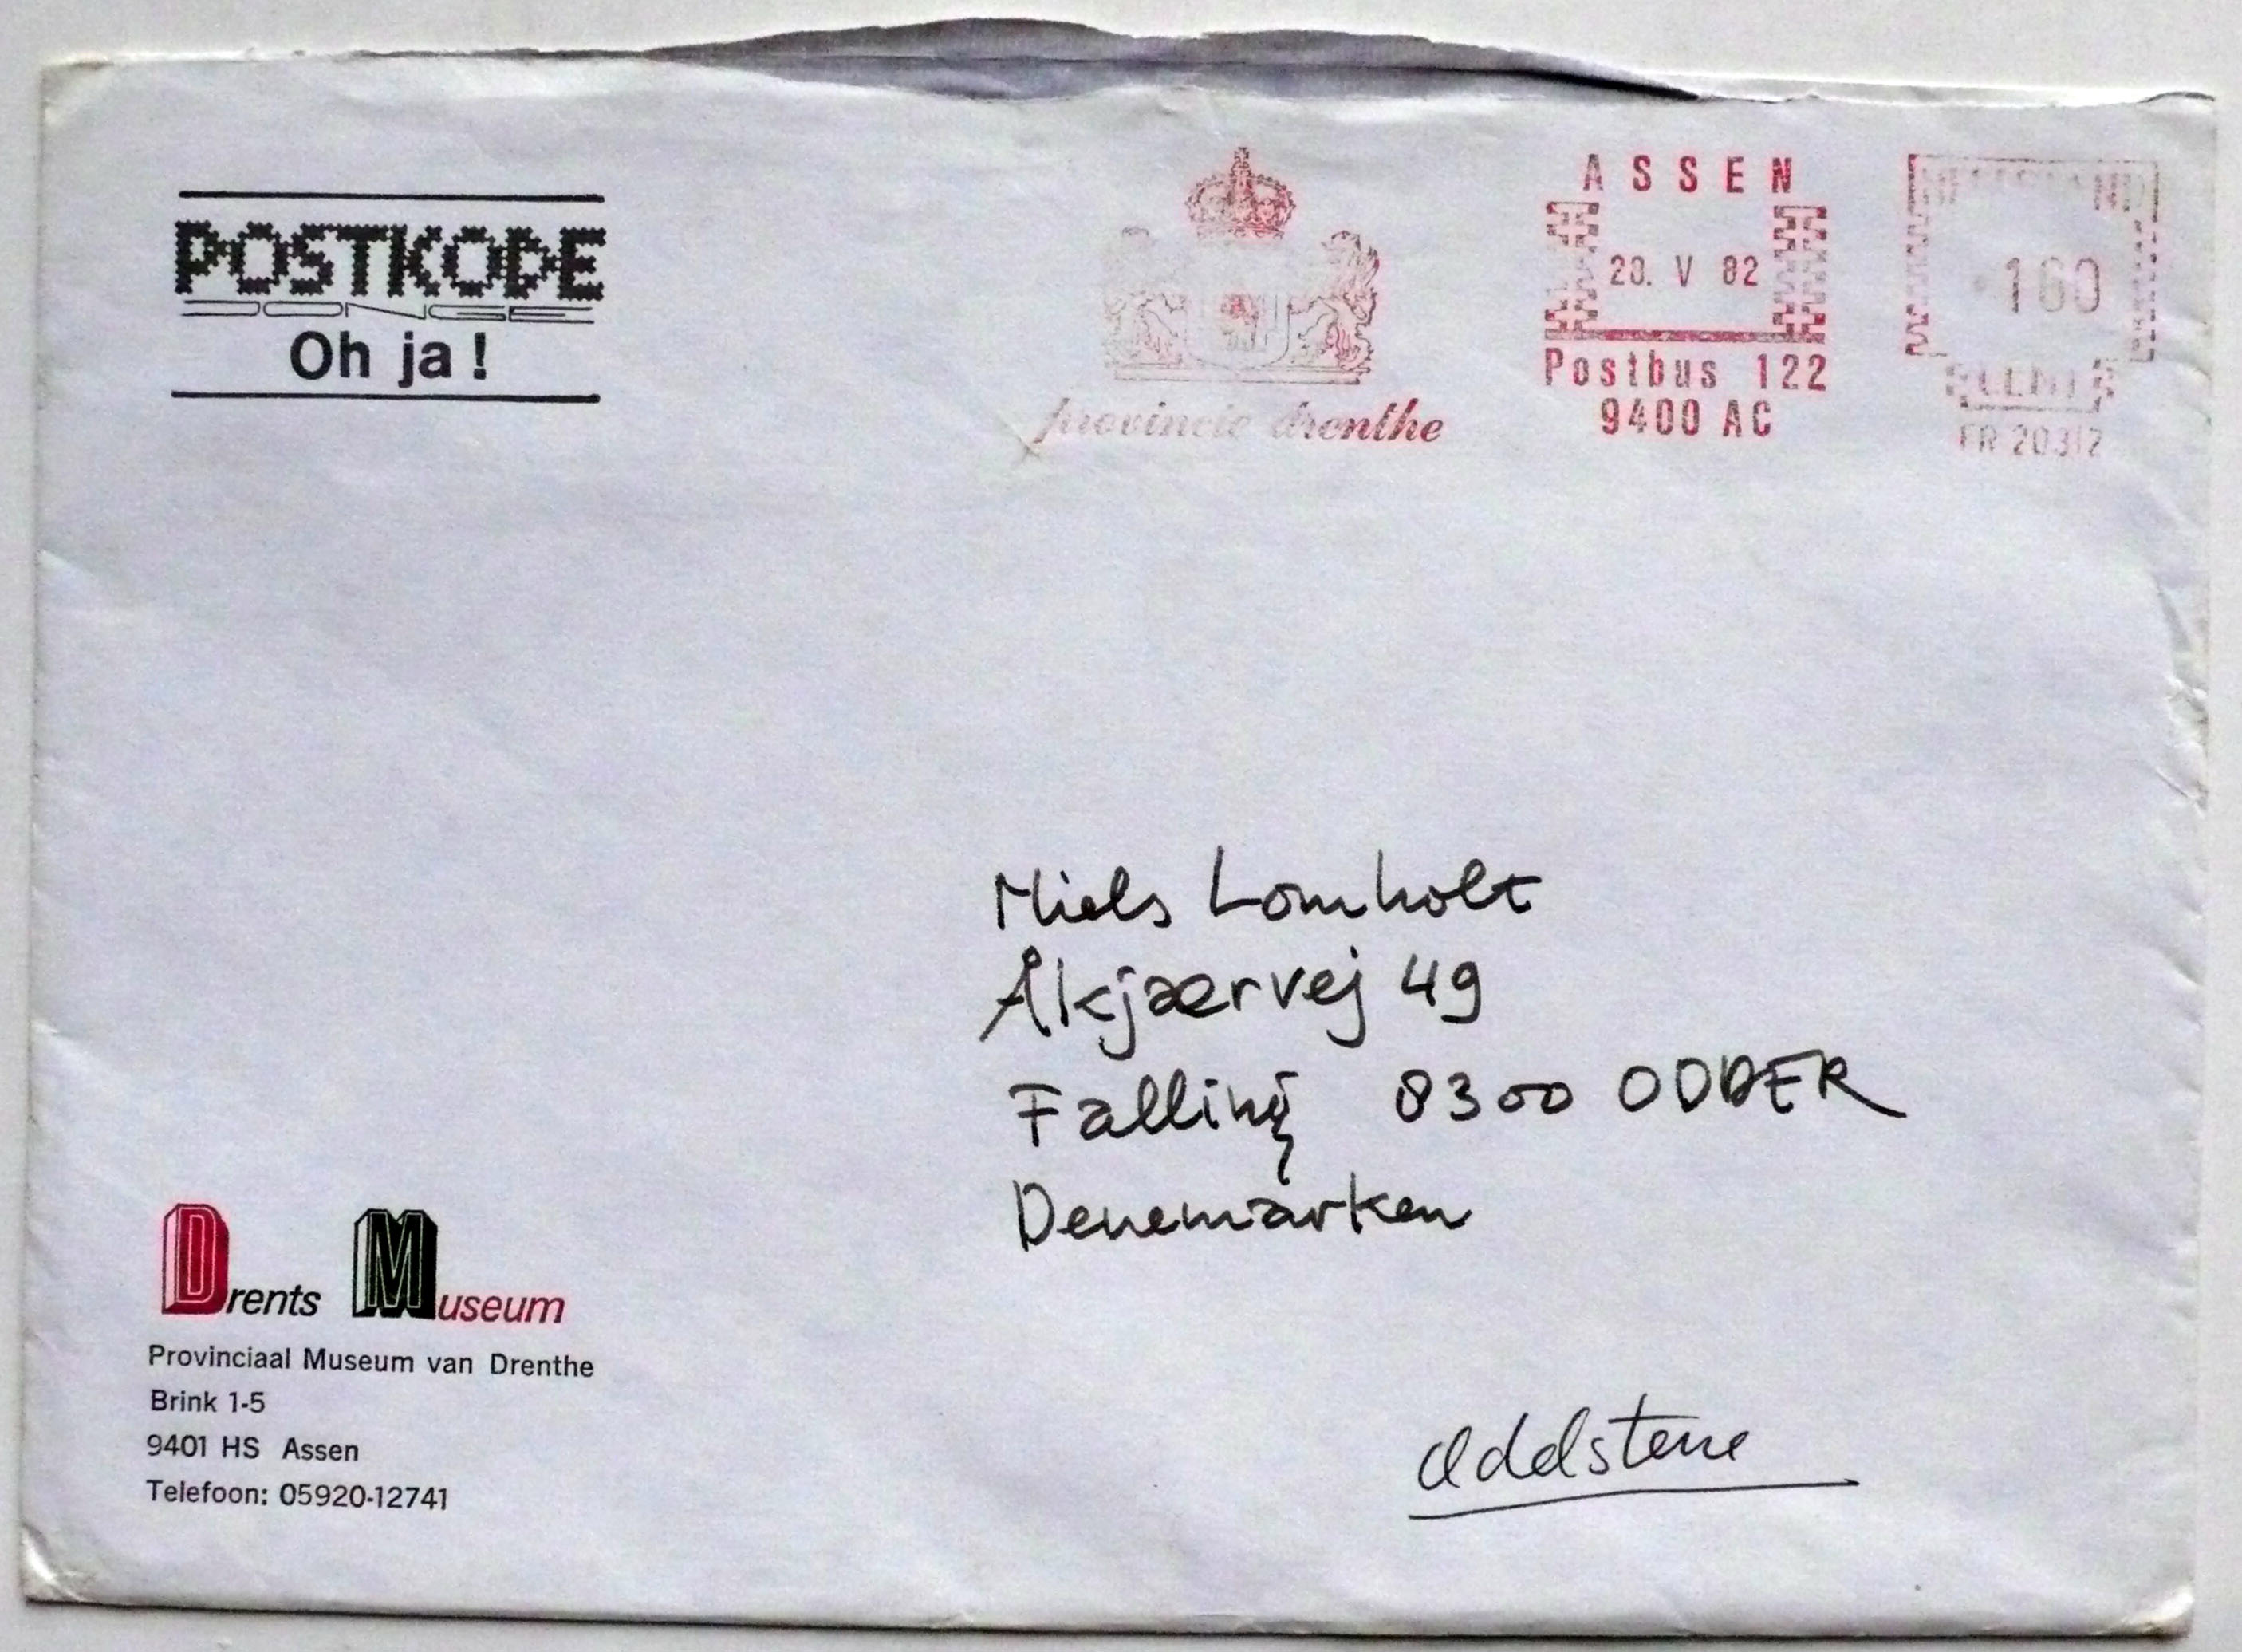 POSTKODE
Oh ja !
provincie drenthe
ASSEN
20. V 82
Postbus 122
9400 AC
NEDERLAND
160
CENT
FR 20312
Niels Lomholt
Åkjærvej 49
Falling 8300 ODDER
Denemarken
Drents Museum
Provinciaal Museum van Drenthe
Brink 1-5
9401 HS Assen
Telefoon: 05920-12741